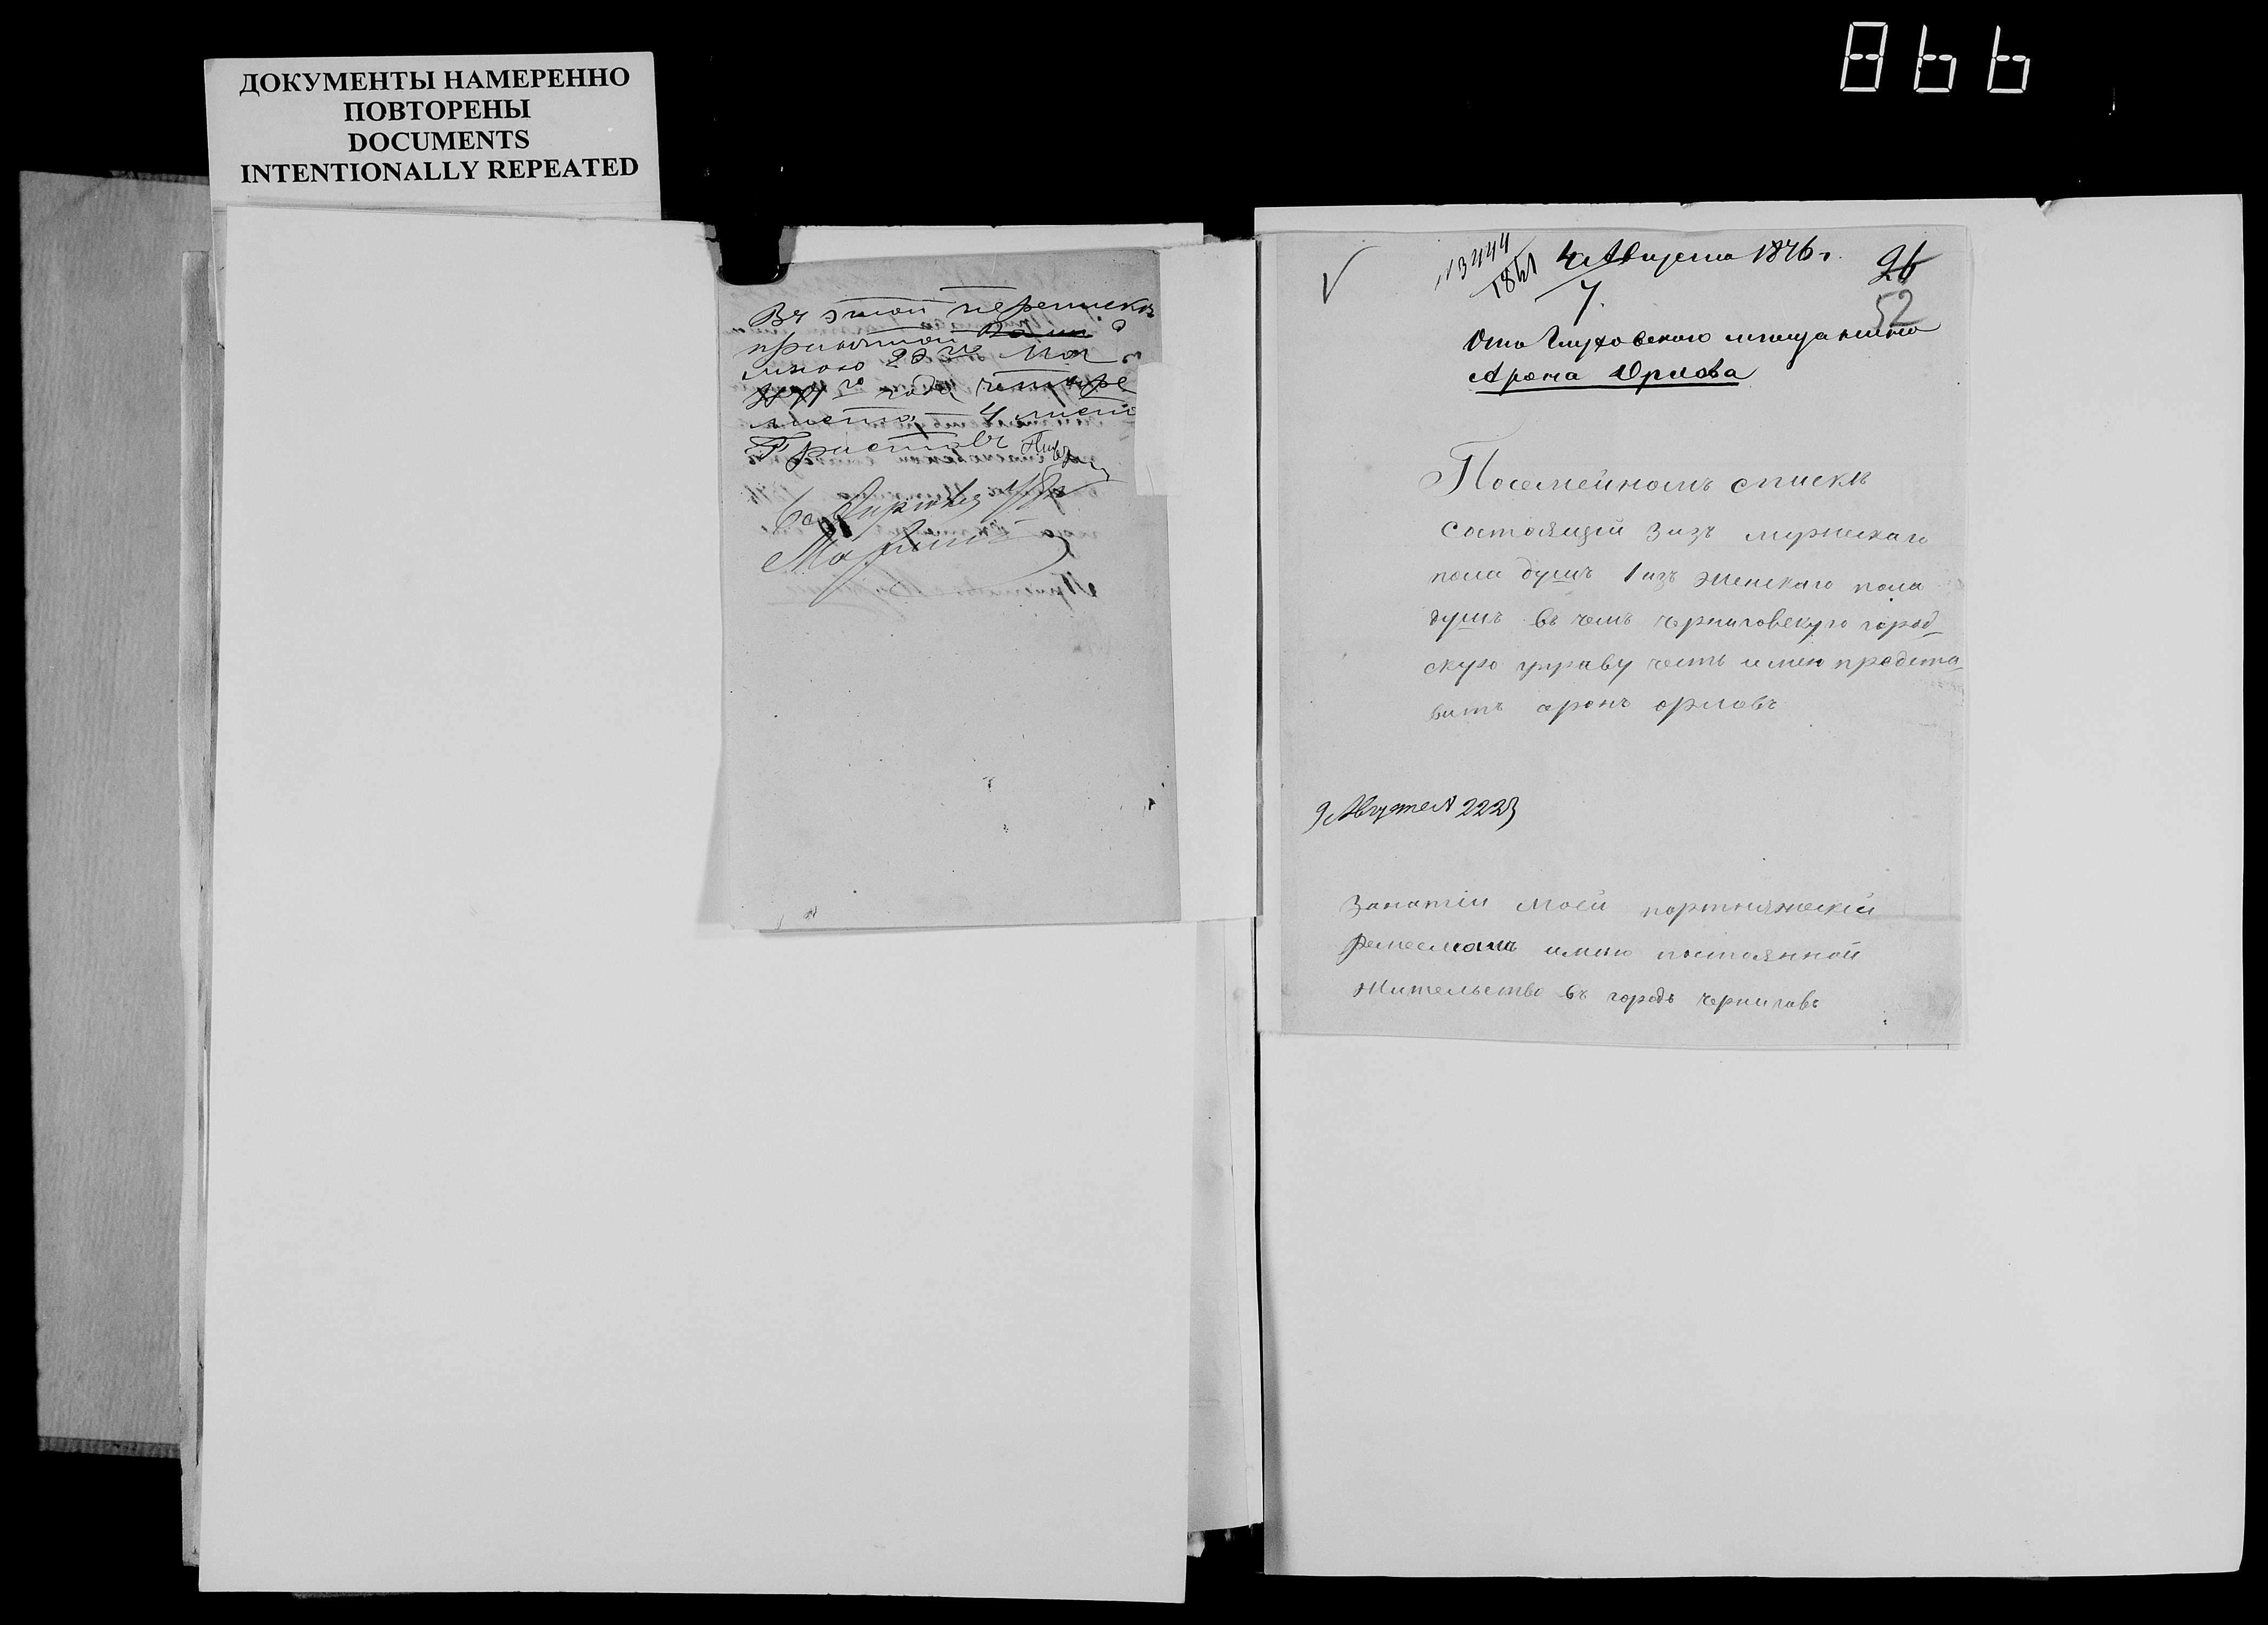 ДОКУМЕНТЫ НАМЕРЕННО
ПОВТОРЕНЫ
DOCUMENTS
INTENTIONALLY REPEATED
866
Въ этой перепискѣ
принятой
мною 23 мая
года четыре
листа, 4 листа
Приставъ
№3444
1861
4 Августа 1876 г.
7.
26
52
Отъ Глуховского мѣщанина
Арона Орлова
Посемейномъ спискѣ
состоящій 3 изъ мужескаго
пола душъ 1 изъ женскаго пола
душъ въ чемъ черниговскую город-
скую управу честь имею предста-
вить аронъ орловъ
9 Августа № 2223
Занятіи моей портняжескій
ремесломъ имею постоянной
жительство въ городѣ черниговѣ